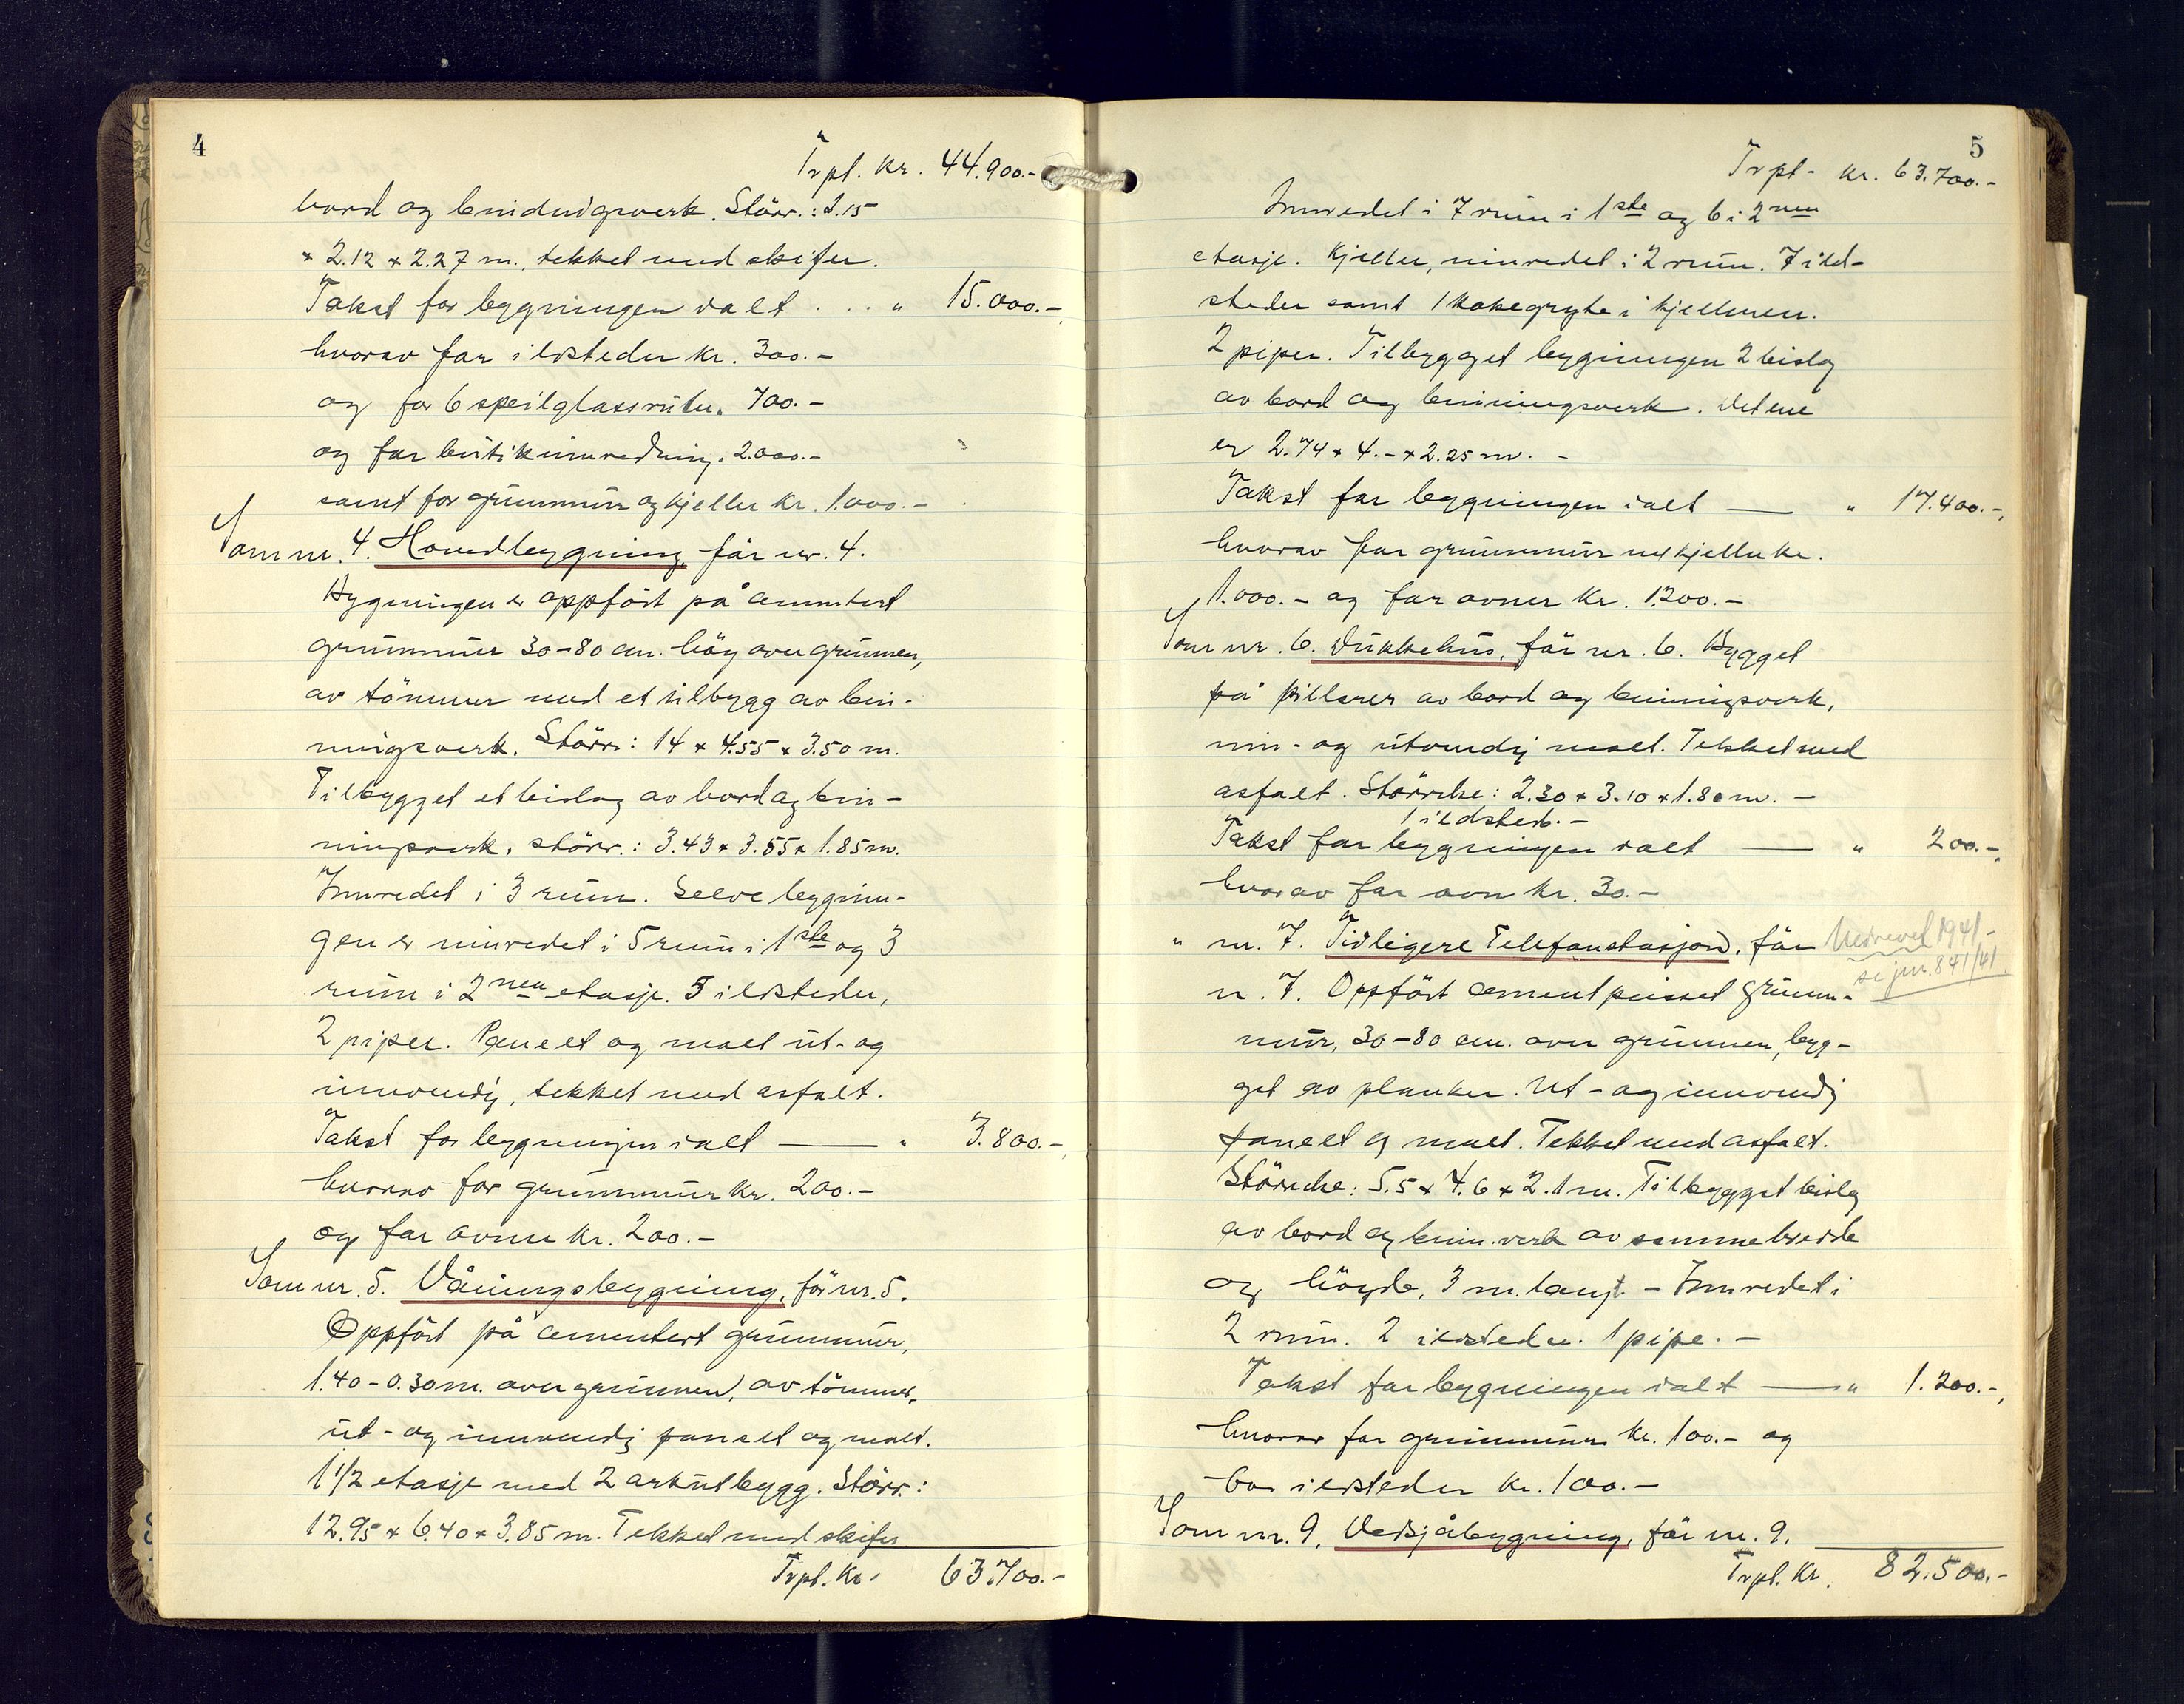 4
Trpt. kr. 44.900.-
bord og bindingsverk. Störr.: 2.15
× 2.12 × 2.27 m., tekket med skifer.
Takst for bygningen ialt . . . " 15.000.-,
hvorav for ildsteder kr. 300.-
og for 6 speilglassruter " 700.-
og for butikinnredning " 2.000.-
samt for grunnmur og kjeller kr. 1.000.-
Som nr. 4. Hovedbygning, får nr. 4.
Bygningen er oppfört på cementert
grunnmur 30-80 cm. höy over grunnen,
av tömmer med et tilbygg av bin-
ningsverk. Störr.: 14 × 4.55 × 3.50 m.
Tilbygget et bislag av bord og bin-
ningsverk, störr.: 3.43 × 3.55 × 1.85 m.
Innredet i 3 rum. Selve bygnin-
gen er innredet i 5 rum i 1ste og 3
rum i 2nen etasje. 5 ildsteder,
2 piper. Panelt og malt ut- og
innvendig, tekket med asfalt.
Takst for bygningen ialt — " 3.800.-,
hvorav for grunnmur kr. 200.-
og for ovner kr. 200.-
Som nr. 5. Våningsbygning, får nr. 5.
Oppfört på cementert grunnmur,
1.40-0.30 m. over grunnen, av tömmer,
ut- og innvendig panelt og malt.
1 1/2 etasje med 2 arkutbygg. Störr.:
12.95 × 6.40 × 3.85 m. Tekket med skifer
Trpt. Kr. 63.700.-
5
Trpt- kr. 63.700.-
Innredet i 7 rum i 1ste og 6 i 2nen
etasje. Kjeller, innredet i 2 rum. 7 ild-
steder samt 1 kokegryte i kjelleren.
2 piper. Tilbygget bygningen 2 bislag
av bord og binningsverk. Det ene
er 2.74 × 4.- × 2.25 m. -
Takst for bygningen ialt — " 17.400.-,
hvorav for grunnmur kjeller kr.
1.000.- og for ovner kr. 1.200.-
Som nr. 6. Dukkehus, får nr. 6. Bygget
på pillarer av bord og binningsverk,
inn- og utvendig malt. Tekket med
asfalt. Störrelse: 2.30 × 3.10 × 1.80 m. -
1 ildsted. -
Takst for bygningen ialt — " 200.-,
hvorav for ovn kr. 30.-
" nr. 7. Tidligere Telefonstasjon, får Nedrevet 1941-
se jnr. 841/41.
nr. 7. Oppfört cementpusset grunn-
mur, 30-80 cm. over grunnen, byg-
get av planker. Ut- og innvendig
panelt og malt. Tekket med asfalt.
Störrelse: 5.5 × 4.6 × 2.1 m. Tilbygget bislag
av bord og binn.verk av samme bredde
og höyde, 3 m. langt. - Innredet i
2 rum. 2 ildsteder. 1 pipe. -
Takst for bygningen ialt — " 1.200.-,
hvorav for grunnmur kr. 100.- og
for ildsteder kr. 100.-
Som nr. 9. Vedsjåbygning, får nr. 9.
Trpt. Kr. 82.500.-